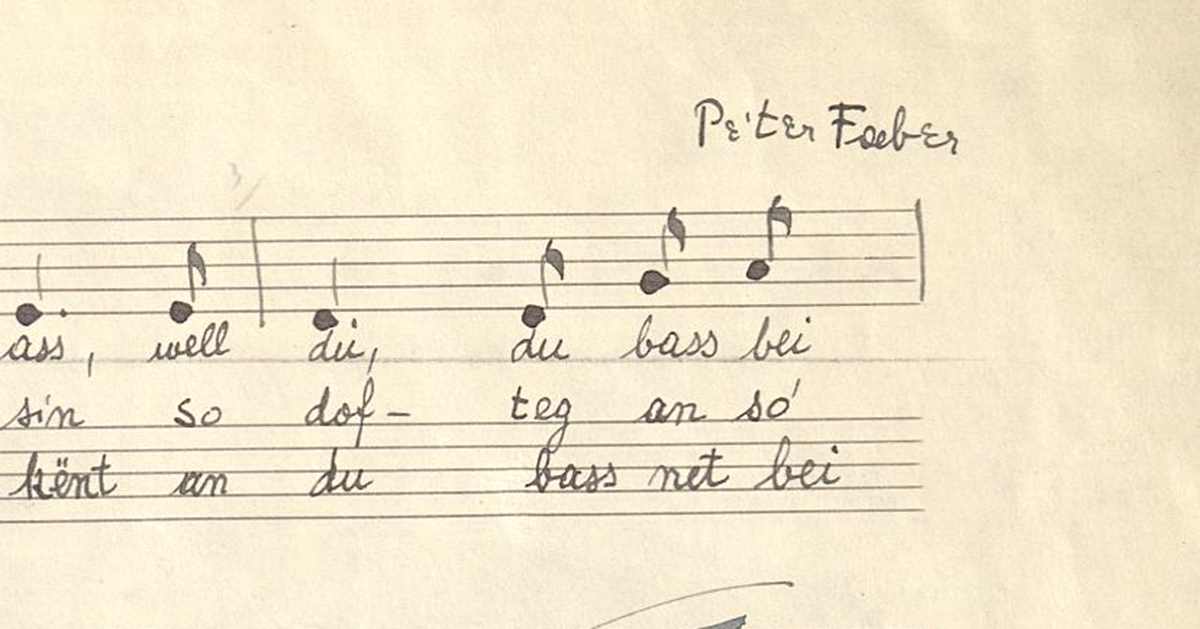 Pe'ter Faber
ass, well du, du bass bei
sin so dof- teg an so'
kënt an du bass net bei